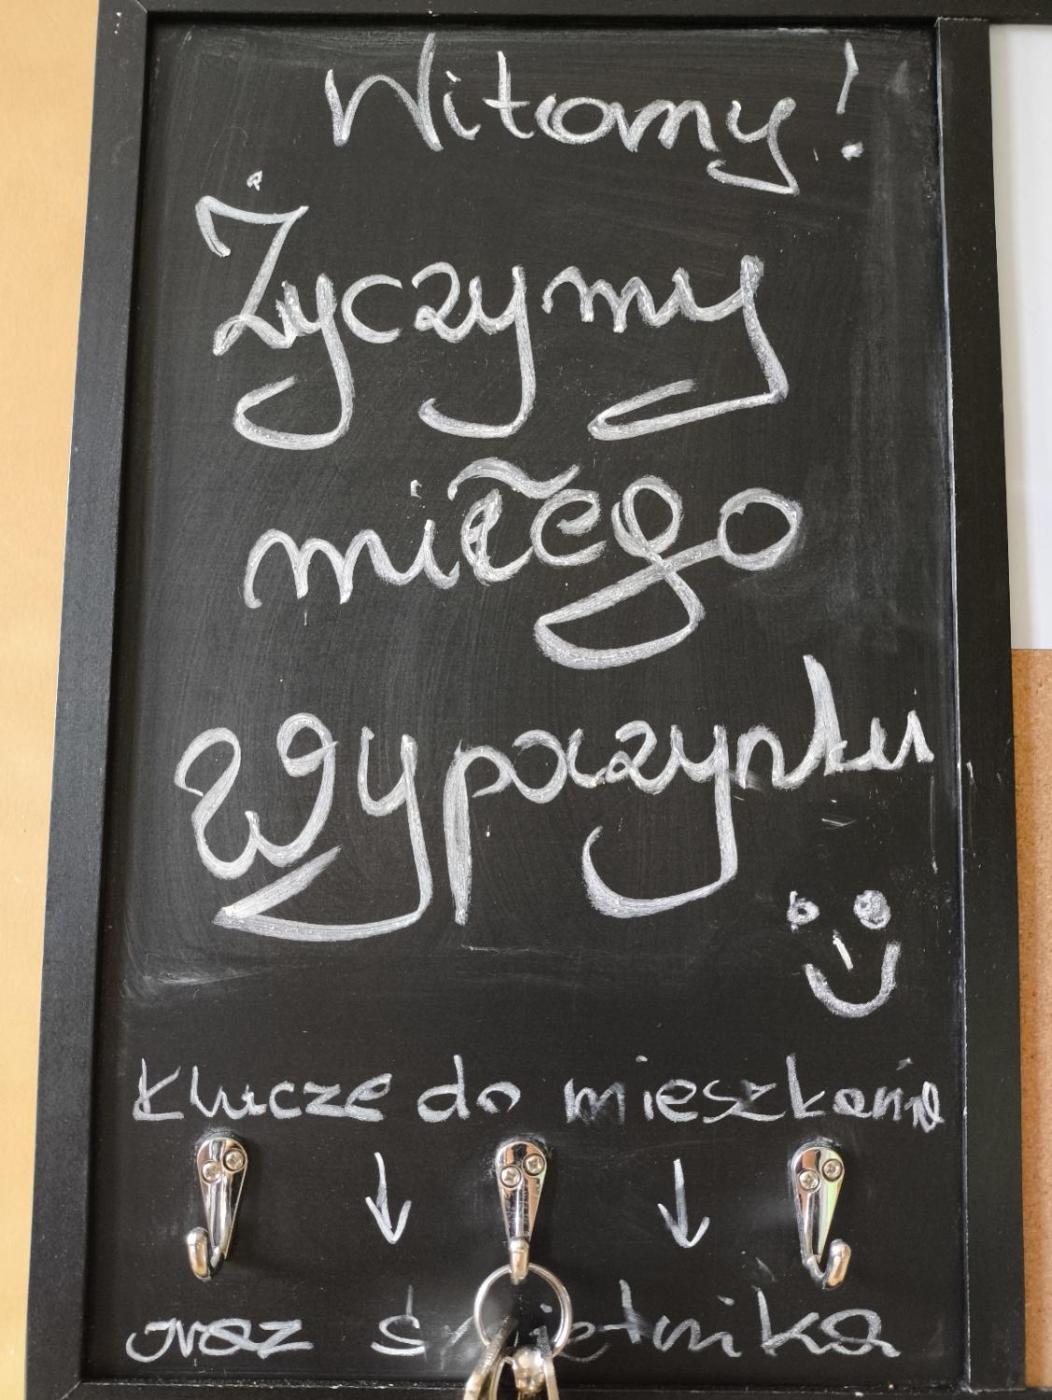 Witamy!
Życzymy
miłego
Wypoczynku
Klucze do mieszkania
oraz śmietnika